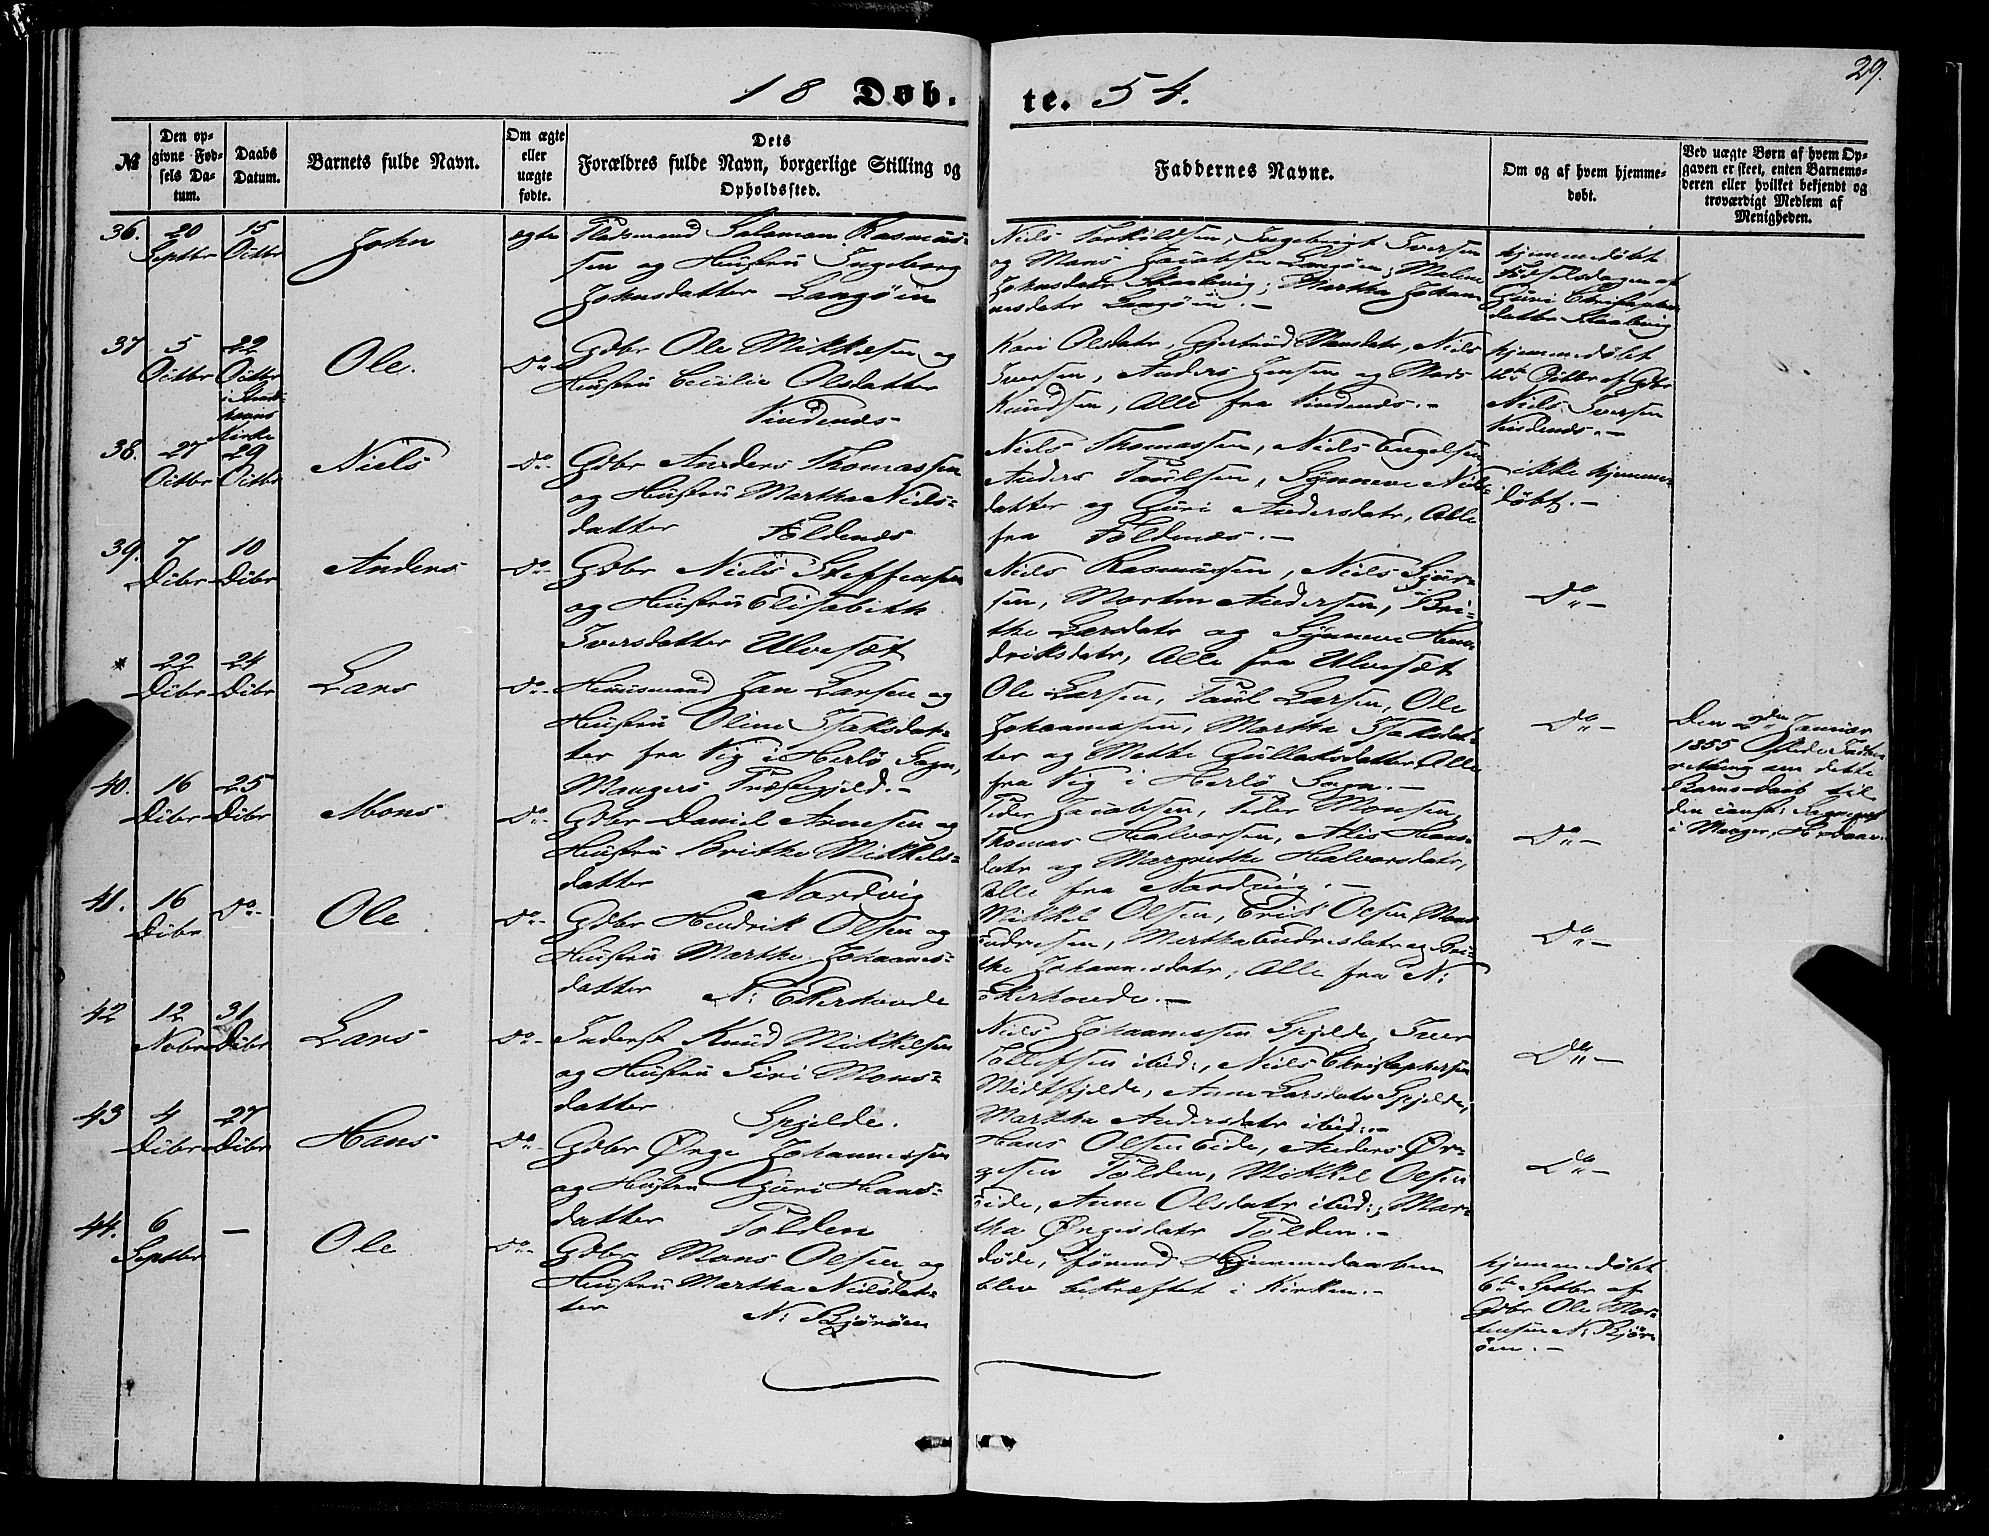 29.
18 Døb. te. 54.
№
Den opgivne Fødsels Datum.
Daabs Datum.
Barnets fulde Navn.
Om ægte eller uægte fødte.
Dets Forældres fulde Navn, borgerlige Stilling og Opholdssted.
Faddernes Navne.
Om og af hvem hjemmedøbt.
Ved uægte Børn af hvem Opgaven er skeet, enten Barnemoderen eller hvilket bekjendt og troværdigt Medlem af Menigheden.
36. 20 Septbr 15 Octbr John ægte
Pladsmand Salamon Rasmus-
sen og Hustru Ingeborg
Johnsdatter Langøen
Niels Torkildsen, Ingebrigt Iversen
og Mons Jacobsen Langøen; Malene
Johnsdatr ; Martha Johan-
nesdatr Langøen.-
hjemmedøbt
Fødselsdagen af
Guri Christophers
datter
37 5 Octbr 22 Octbr i
Kirke
Ole. Do-
Gdbr Ole Mikkelsen og
Hustru Cecilie Olsdatter
Vindenæs
Kari Olsdatr, Gjertrud Monsdatr, Niels
Iversen, Anders Jensen og Mons
Knudsen, Alle fra Vindenæs.-
hjemmedøbt
Octbr af Gdbr
Niels Iversen
Vindenæs.-
38. 27 Octbr 29 Octbr Niels Do-
Gdbr Anders Thomassen
og Hustru Martha Niels-
datter Foldenæs
Niels Thomassen, Niels Engelsen
Anders Poulsen, Synneve Niels-
datter og Guri Andersdatr, Alle
fra Foldenæs.-
ikke hjemme-
døbt.-
39. 7 Dcbr 10 Dcbr Anders Do-
Gdbr Niels Steffensen
og Hustru Elisabeth
Iversdatter Ulvesæt
Niels Rasmussen, Niels
sen, Morten Andersen, Bri-
the Larsdatr og Synneve Hen-
driksdatr, Alle fra Ulvesæt
Do-
* 22 Dcbr 24 Dcbr Lars Do-
Huusmand Jan Larsen og
Hustru Oline Isaksdat-
ter fra Vig i Herlø Sogn,
Mangers Præstegjeld.-
Ole Larsen, Poul Larsen, Ole
Johannessen, Martha Isaksdat-
ter og Mette Gullaksdatter, Alle
fra Vig i Herlø Sogn.-
Do-
Den 2den Januar
1855
om dette
Barns Daab til
den
i Manger,
40. 16 Dcbr 25 Dcbr Mons Do-
Gdbr Daniel Arnesen og
Hustru Brithe Mikkels-
datter Nordvig
Peder Jacobsen, Peder Monsen,
Thomas Halvorsen, Alis Hans-
datr og Margrethe Halvorsdatr,
Alle fra Nordvig.-
Do-
41. 16 Dcbr Do- Ole Do-
Gdbr Hendrik Olsen og
Hustru Marthe Johannes-
datter N: Ekerhovde
Mikkel Olsen, Erik Olsen, Mons
Endresen, Martha Endresdatr og Bri-
the Johannesdatr, Alle fra N:
Ekerhovde.-
Do-
42 12 Novbr 31 Dcbr Lars Do-
Inderst Knud Mikkelsen
og Hustru Siri Mons-
datter Spjelde.
Niels Johannessen Spjelde, Iver
Tollefsen ibid:, Niels Christophersen
Midtfjelde, Anne Larsdatr Spjelde,
Martha Andersdatr ibid:.-
Do-
43 4 Dcbr 27 Dcbr Hans Do-
Gdbr Ørge Johannessen
og Hustru Guri Hans-
datter Tolden
Hans Olsen Eide, Anders Ør-
gesen Tolden, Mikkel Olsen
Eide, Anne Olsdatr ibid:; Mar-
tha Ørgesdatr Tolden.-
Do-
44. 6 Septbr - Ole Do-
Gdbr Mons Olsen og
Hustru Martha Nielsdat-
ter N: Bjørøen
døde, førend Hjemmedaaben
blev bekræftet i Kirken.-
hjemmedøbt
6te Septbr af
Gdbr Ole Mor-
tensen N: Bjør-
øen.-